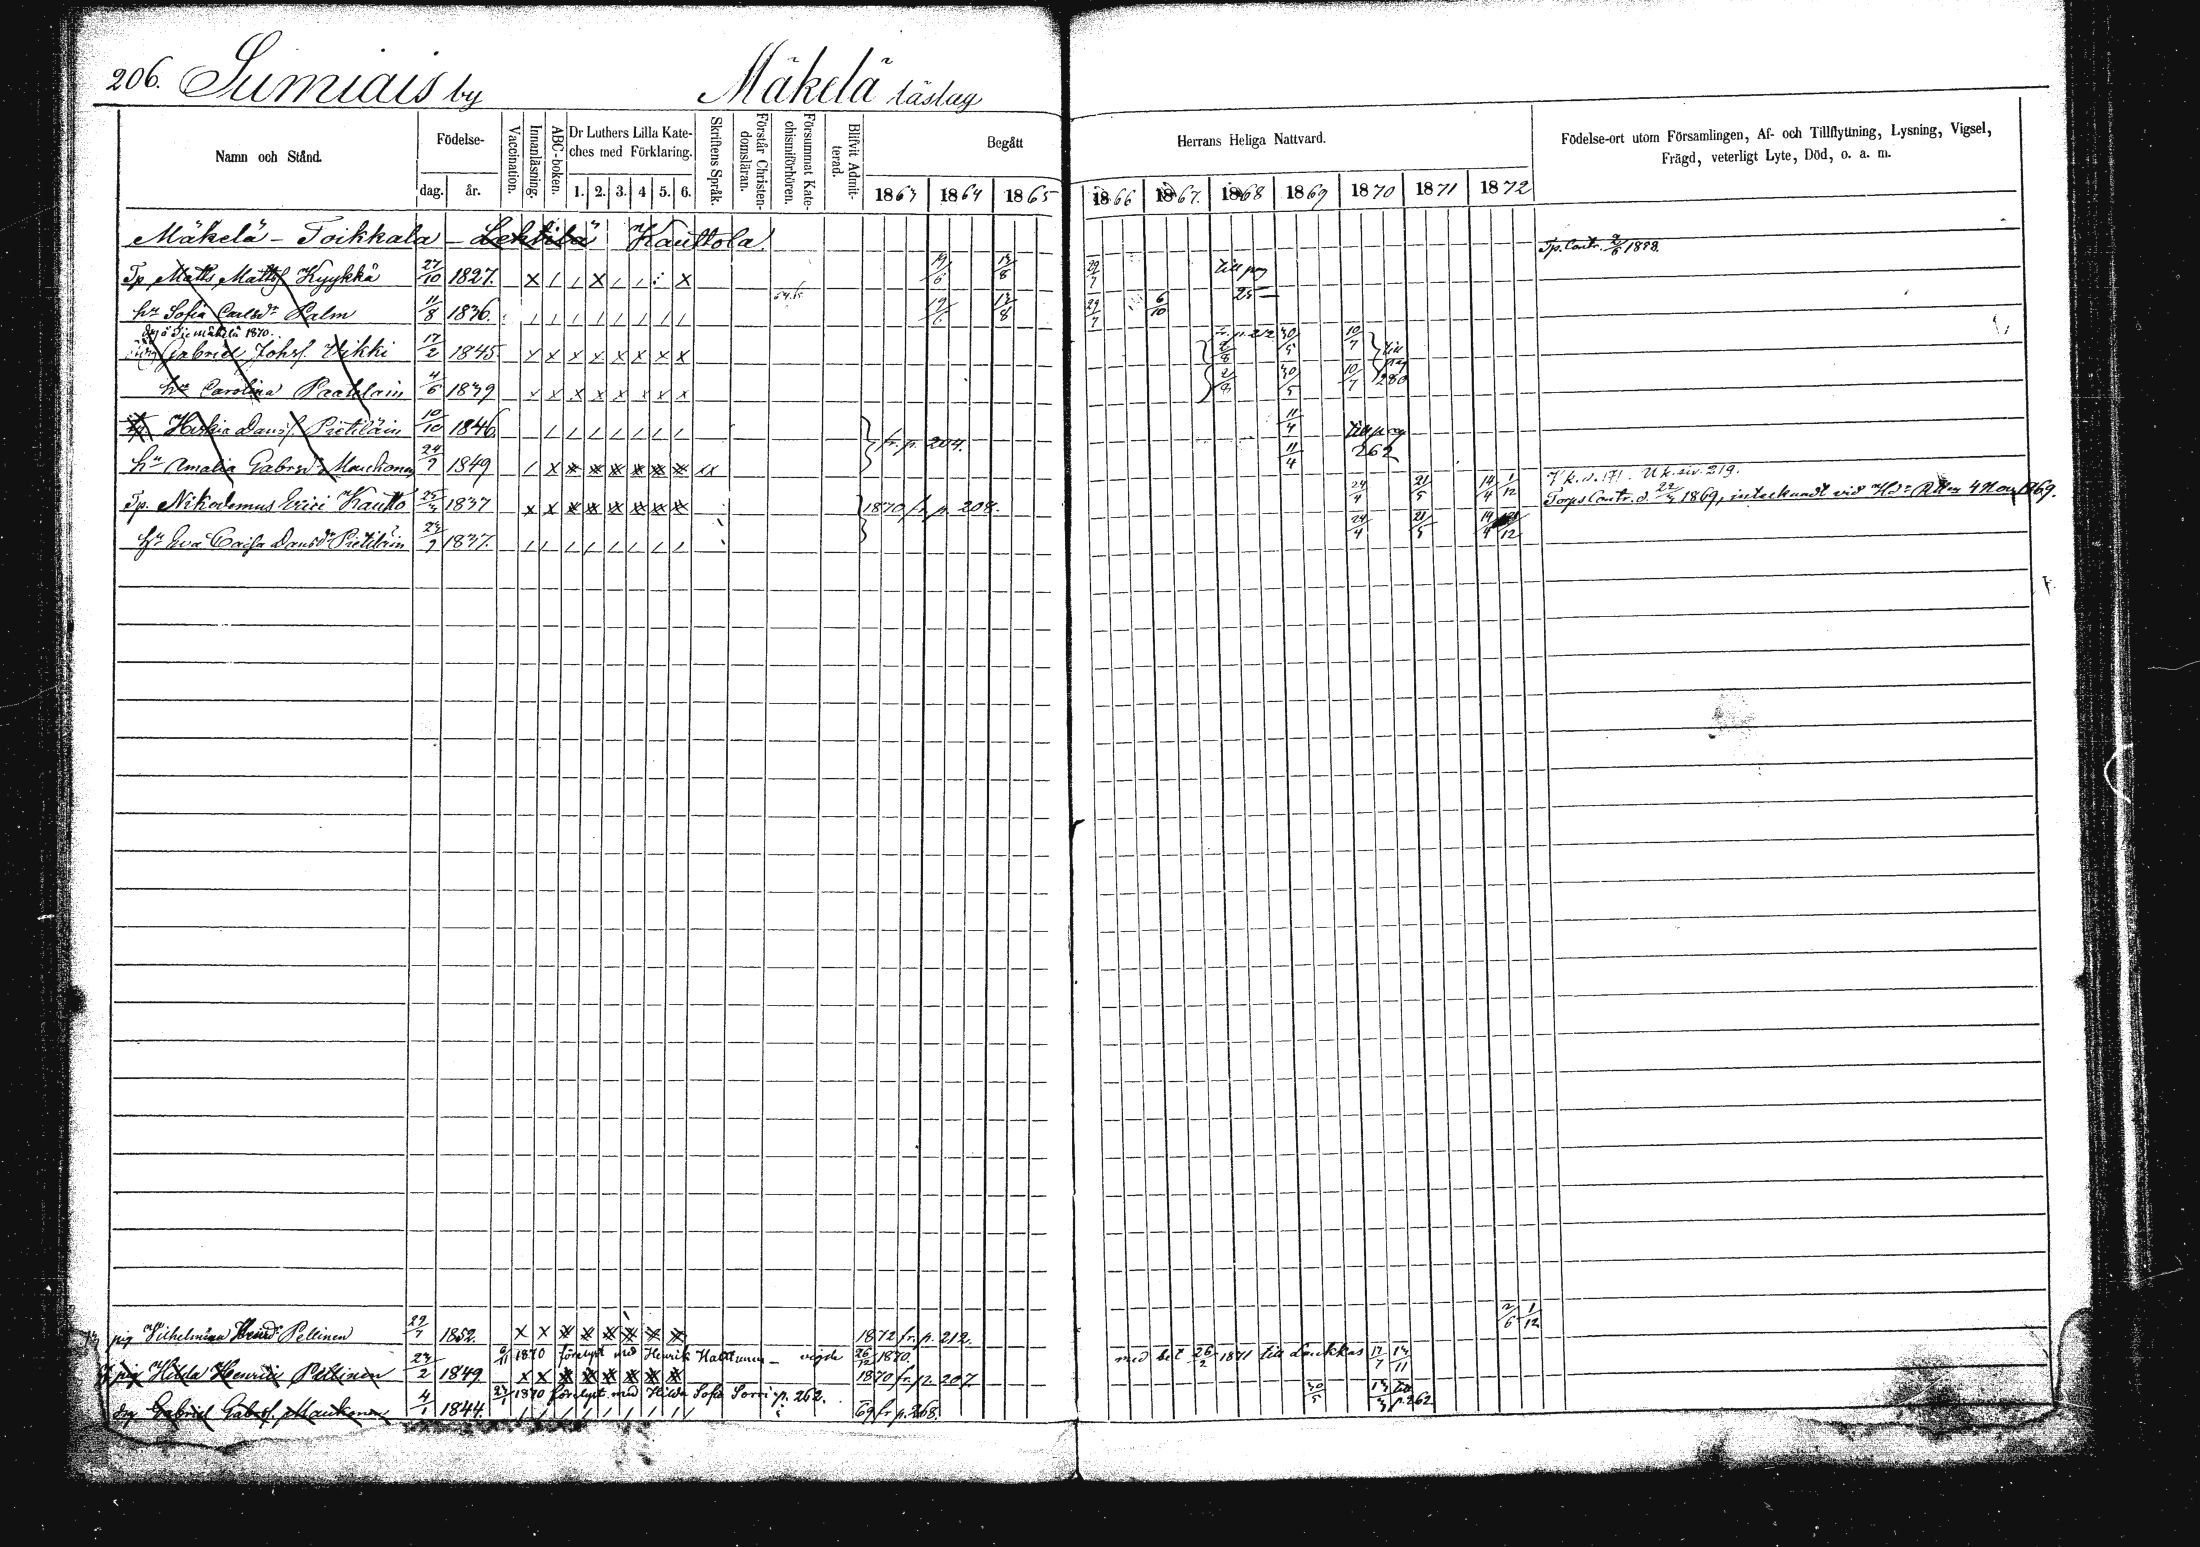 206. Sumiais by Mäkelä läslag
Namn och Stånd. Födelse- dag. år. Vaccination. Innanläsning. ABC-boken. Dr Luthers Lilla Kateches med Förklaring. 1. 2. 3. 4 5. 6. Skriftens Språk. Förstår Christendomsläran. Försummat Katechismiförhören. Blifvit Admitterad. Begått Herrans Heliga Nattvard. Födelse-ort utom Församlingen, Af- och Tillflyttning, Lysning, Vigsel, Frägd, veterligt Lyte, Död, o. a. m.
1863 1864 1865 1866 1867. 1868 1869 1870 1871 1872
Mäkelä - Toikkala - Kauttola Tp. Contr. 1888.
Tp Matts Mattsf Kyykkä 27/10 1827. x / / x / / : x 19/6 13/8 29/7 till pag
hu Sofia Carlsdr Palm 11/8 1836. / / / / / / / / 19/6 13/8 29/7 6/10 25
Mäkelä 1870.
Gabriel Johsf. Vikki 17/2 1845 x x x x x x x x fr. p. 212 2/8 30/5 10/7 till pag 280
hu Carolina 4/6 1839 x x x x x x x x 2/8 30/5 10/7
Heskia Dansf Pietiläin 10/10 1846. / / / / / / / fr. p. 204. 11/4 till pag 262
hu Amalia Gabrsdr Manchonen 24/7 1849 / x x x x x x x xx 11/4
Tp. Nikodemus Erici Kautto 25/3 1837 x x x x x x x x 1870 fr. p. 208. 24/4 21/5 14/4 1/12 V k. s. 171. U k. siv. 219.
Torps Contr. d. 22/3 1869, inteckundt vid Hds Rtten 4 Nov 1869.
hu Eva Caisa Dansdr Pietiläin 23/9 1837. / / / / / / / / 24/4 21/5 14/4 12
pig Vilhelmina Heinrdr Pellinen 29/7 1852. x x x x x x x x 1872 fr. p. 212. 2/6 1/12
6/11 1870 förelyst med Henrik Halttunen - vigde 26/12 1870. med bet 26/2 1871 till Laukkas 17/7 13/11
pig Hilda Henrici Pellinen 23/2 1849. x x x x x x x x 1870 fr. p. 207.
1870 förelyst med Hilda Sofia Sorri p. 262. 30/5 13/3 till p. 262
drg Gabriel Gabrsf. Maukonen 4/1 1844. / / / / / / / / 69 fr. p. 268.